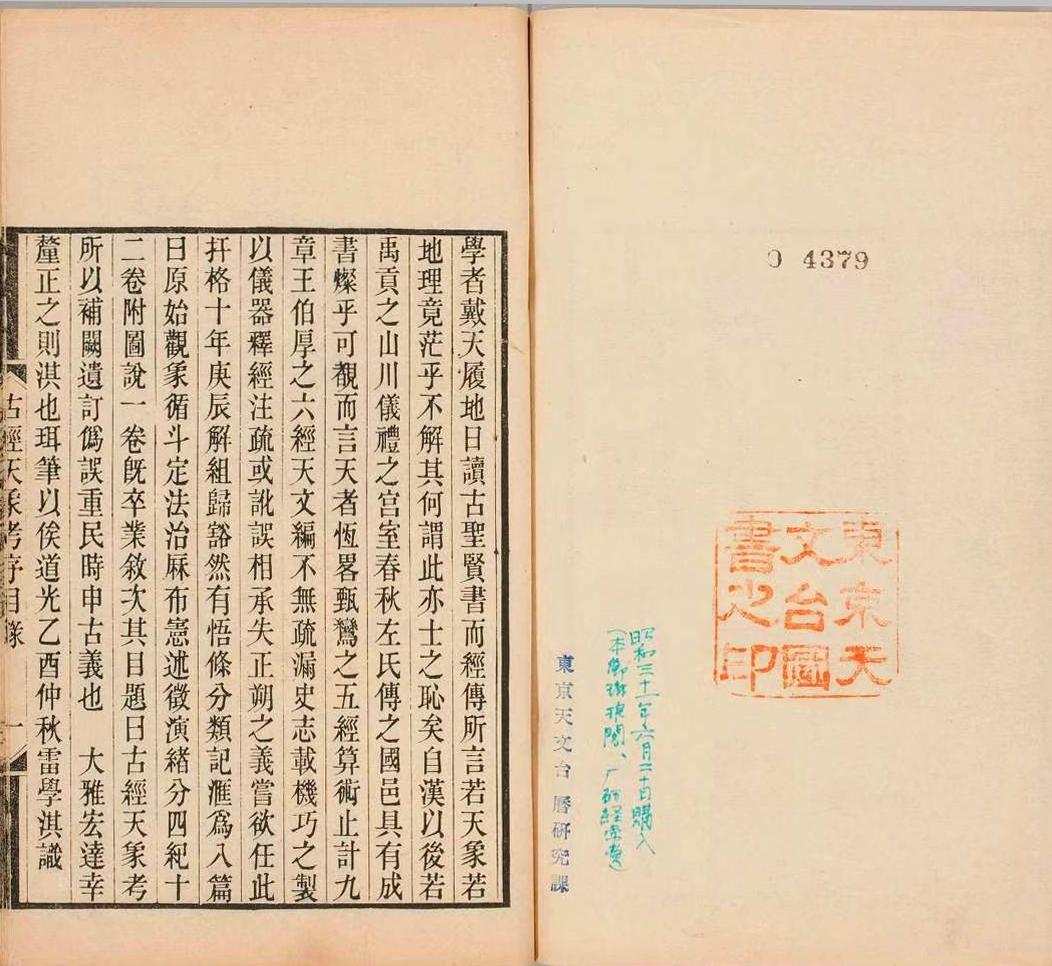 O 4379
東京天
文台圖
書之印
昭和三十一年六月二十日購入
東京天文台 曆研究課
學者戴天履地日讀古聖賢書而經傳所言若天象若
地理竟茫乎不解其何謂此亦士之恥矣自漢以後若
禹貢之山川儀禮之宮室春秋左氏傳之國邑具有成
書燦乎可覩而言天者恆畧甄鸞之五經算術止計九
章王伯厚之六經天文編不無疏漏史志載機巧之製
以儀器釋經注疏或訛誤相承失正朔之義嘗欲任此
扞格十年庚辰解組歸豁然有悟條分類記滙爲八篇
曰原始觀象循斗定法治厤布憲述徵演緒分四紀十
二卷附圖說一卷旣卒業敘次其目題曰古經天象考
所以補闕遺訂僞誤重民時申古義也 大雅宏達幸
釐正之則淇也珥筆以俟道光乙酉仲秋雷學淇識
古經天象考序目 一